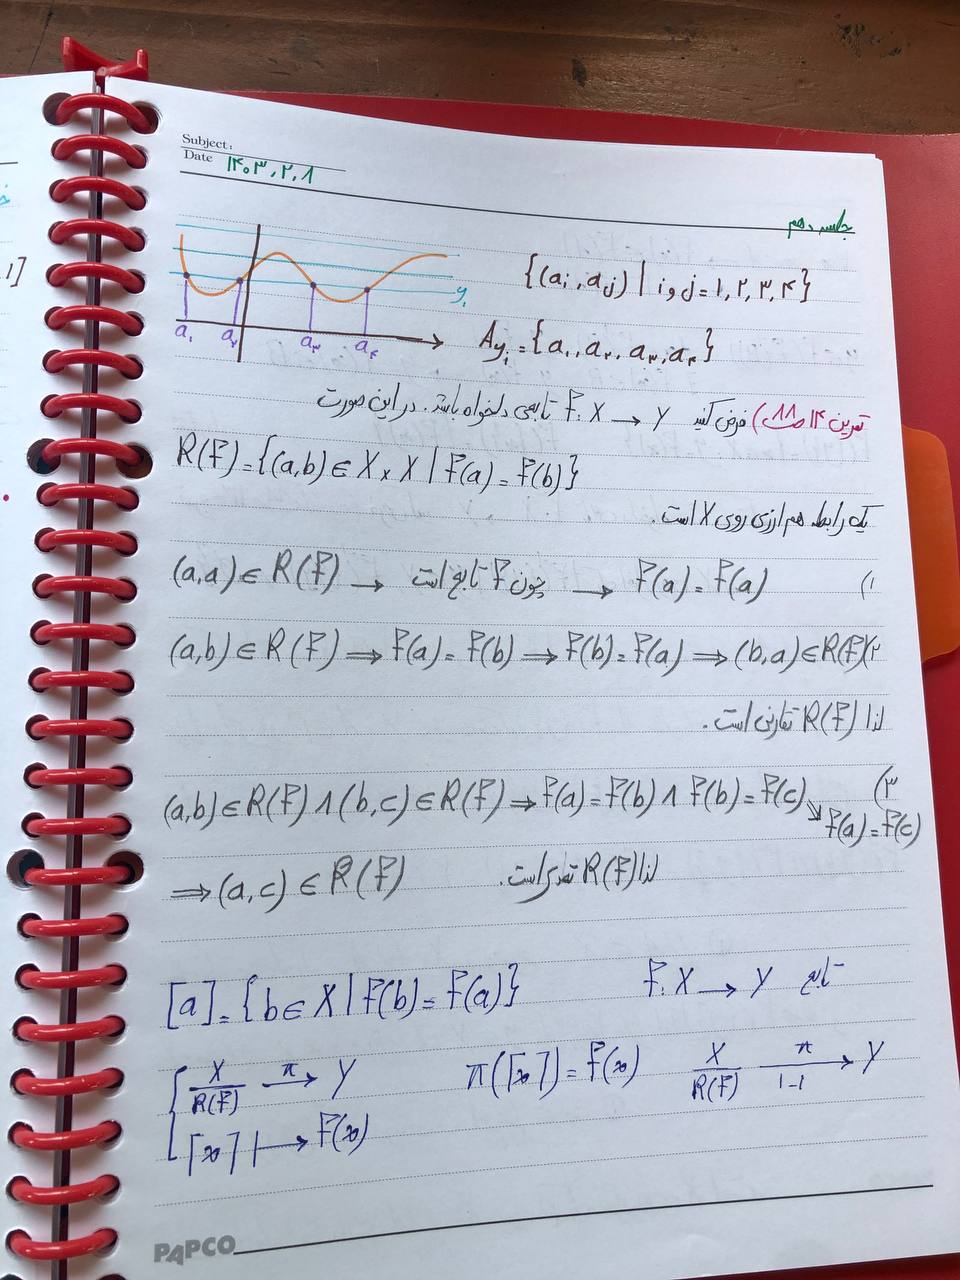 Subject:
Date ۱۴۰۳,۲,۸
جلسه دهم
{(aᵢ, aⱼ) | i و j = ۱, ۲, ۳, ۴}
y₁
a₁ a₂ a₃ a₄
A_y₁ = {a₁, a₂, a₃, a₄}
تمرین ۱۴ ص ۸۸) فرض کنید f: X → Y تابعی دلخواه باشد. در این صورت
R(f) = {(a,b) ∈ X × X | f(a) = f(b)}
یک رابطه هم ارزی روی X است.
۱) f(a) = f(a) ← چون f تابع است ← (a,a) ∈ R(f)
۲) (a,b) ∈ R(f) ⇒ f(a) = f(b) → f(b) = f(a) ⇒ (b,a) ∈ R(f)
لذا R(f) تقارنی است.
۳) (a,b) ∈ R(f) ∧ (b,c) ∈ R(f) ⇒ f(a) = f(b) ∧ f(b) = f(c) ↘ f(a) = f(c)
⇒ (a,c) ∈ R(f) لذا R(f) تعدی است.
تابع f: X → Y [a] = {b ∈ X | f(b) = f(a)}
{ X/R(f) —π→ Y π([x]) = f(x) X/R(f) —π→ 1-1 Y
[x] ↦ f(x)
PAPCO